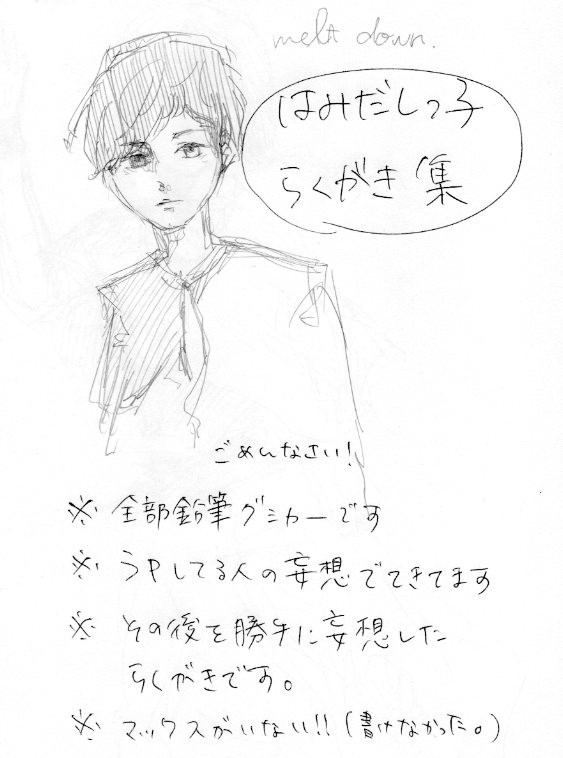 melt down.
はみだしっ子
らくがき集
ごめんなさい!
※ 全部鉛筆グミカーです
※ うPしてる人の妄想でできてます
※ その後を勝手に妄想した
らくがきです。
※ マックスがいない!!(書けなかった。)